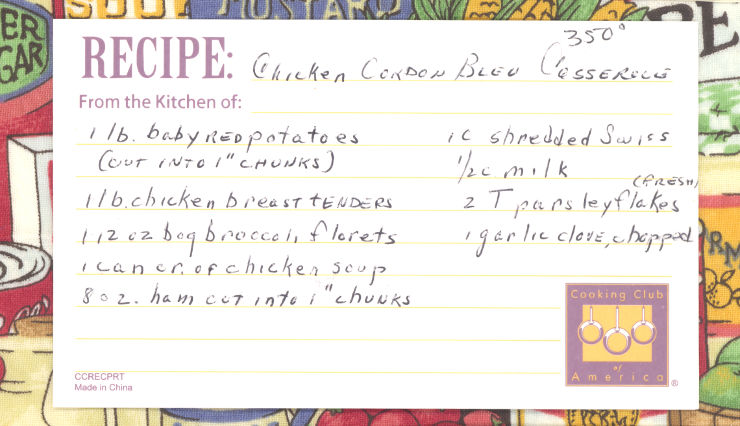 350°
RECIPE: Chicken CORDON BLEU Casserole
From the Kitchen of:
1 lb. baby RED potatoes
(CUT INTO 1" CHUNKS)
1 lb. chicken breast tENDERS
1 12 oz bag broccoli florets
1 can cr. of chicken soup
8 oz. ham cut into 1" chUNKS
1 c shredded Swiss
1/2 c milk
(FRESH)
2 T parsley flakes
1 garlic clove, chopped
Cooking Club
of
America ®
CCRECPRT
Made in China